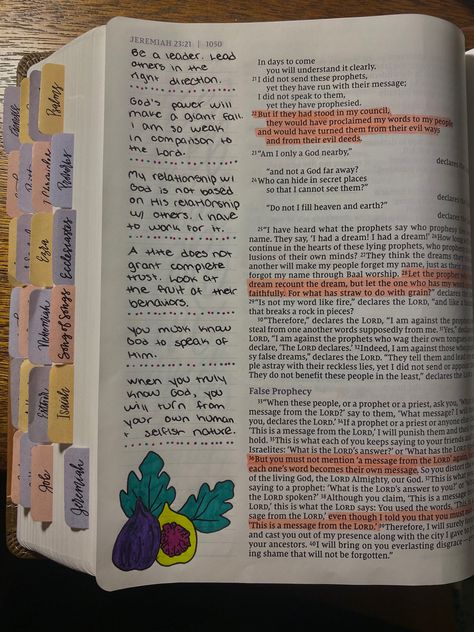 JEREMIAH 23:21 | 1050
Be a leader. Lead
others in the
right direction.
God's power will
make a giant fall.
I am so weak
in comparison to
the Lord.
My relationship w/
God is not based
on His relationship
w/ others. I have
to work for it.
A title does
not grant complete
trust. Look at
the fruit of their
behaviors.
You must know
God to speak of
Him.
When you truly
know God, you
will turn from
your own human +
selfish nature.
In days to come
you will understand it clearly.
21 I did not send these prophets,
yet they have run with their message;
I did not speak to them,
yet they have prophesied.
22 But if they had stood in my council,
they would have proclaimed my words to my people
and would have turned them from their evil ways
and from their evil deeds.
23 "Am I only a God nearby,"
declares the
"and not a God far away?
24 Who can hide in secret places
so that I cannot see them?"
declares the
"Do not I fill heaven and earth?"
declares the
25 "I have heard what the prophets say who prophesy
name. They say, 'I had a dream! I had a dream!' 26 How long
continue in the hearts of these lying prophets, who prophesy
lusions of their own minds? 27 They think the dreams they
another will make my people forget my name, just as their
forgot my name through Baal worship. 28 Let the prophet
dream recount the dream, but let the one who has my word
faithfully. For what has straw to do with grain?" declares the
29 "Is not my word like fire," declares the LORD, "and like a
that breaks a rock in pieces?
30 "Therefore," declares the LORD, "I am against the prophets
steal from one another words supposedly from me. 31 Yes,"
LORD, "I am against the prophets who wag their own tongues
declare, 'The LORD declares.' 32 Indeed, I am against those who
sy false dreams," declares the LORD. "They tell them and lead
ple astray with their reckless lies, yet I did not send or appoint
They do not benefit these people in the least," declares the
False Prophecy
33 "When these people, or a prophet or a priest, ask you, 'What
message from the LORD?' say to them, 'What message? I will
you, declares the LORD.' 34 If a prophet or a priest or anyone
'This is a message from the LORD,' I will punish them and their
hold. 35 This is what each of you keeps saying to your friends
Israelites: 'What is the LORD's answer?' or 'What has the LORD
36 But you must not mention 'a message from the LORD' again,
each one's word becomes their own message. So you distort
of the living God, the LORD Almighty, our God. 37 This is what
saying to a prophet: 'What is the LORD's answer to you?' or
the LORD spoken?' 38 Although you claim, 'This is a message
LORD,' this is what the LORD says: You used the words, 'This
sage from the LORD,' even though I told you that you must
'This is a message from the LORD.' 39 Therefore, I will surely
and cast you out of my presence along with the city I gave to
your ancestors. 40 I will bring on you everlasting disgrace
ing shame that will not be forgotten."
Psalms
Proverbs
Ezra
Ecclesiastes
Nehemiah
Song of Songs
Esther
Isaiah
Job
Jeremiah